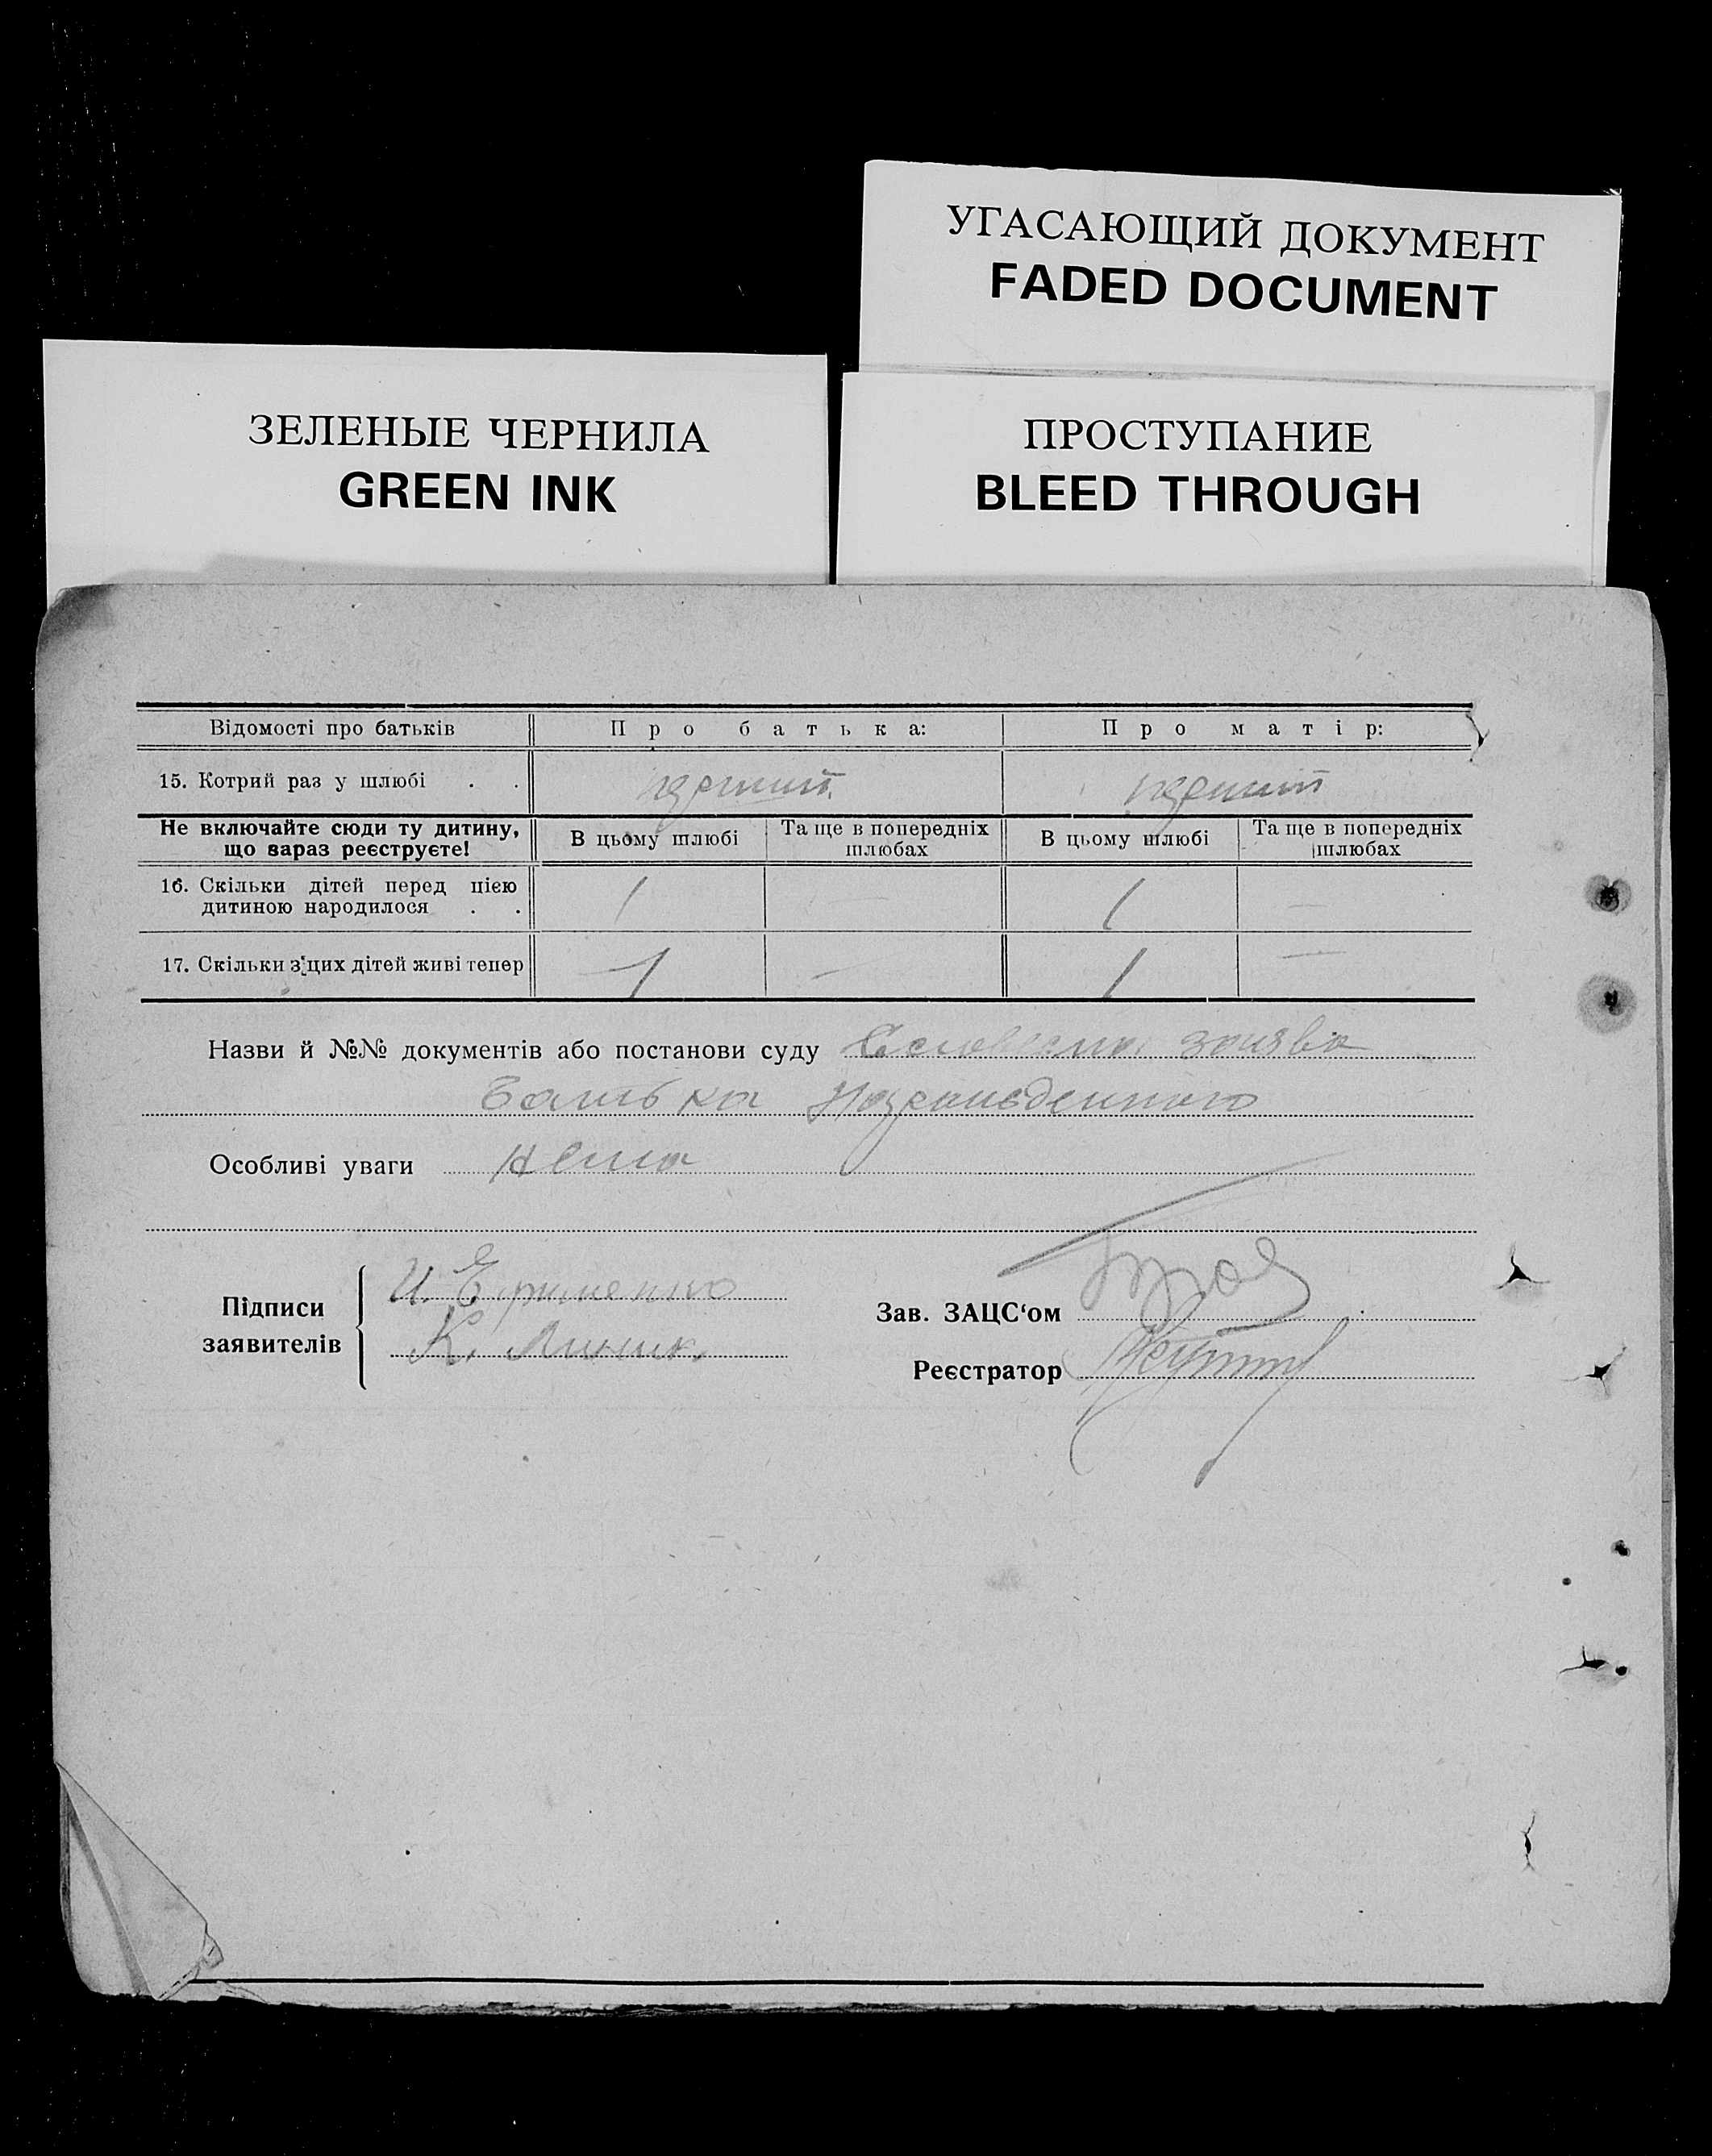 УГАСАЮЩИЙ ДОКУМЕНТ
FADED DOCUMENT
ЗЕЛЕНЫЕ ЧЕРНИЛА
GREEN INK
ПРОСТУПАНИЕ
BLEED THROUGH
Відомості про батьків Про батька: Про матір:
15. Котрий раз у шлюбі . . перший перший
Не включайте сюди ту дитину, що зараз реєструєте! В цьому шлюбі Та ще в попередніх шлюбах В цьому шлюбі Та ще в попередніх шлюбах
16. Скільки дітей перед цією дитиною народилося . . 1 — 1 —
17. Скільки з цих дітей живі тепер 1 — 1 —
Назви й №№ документів або постанови суду Словесна заява
батька
Особливі уваги нема
Підписи заявителів
И. Ефименко
К. Линник.
Зав. ЗАЦС'ом
Реєстратор